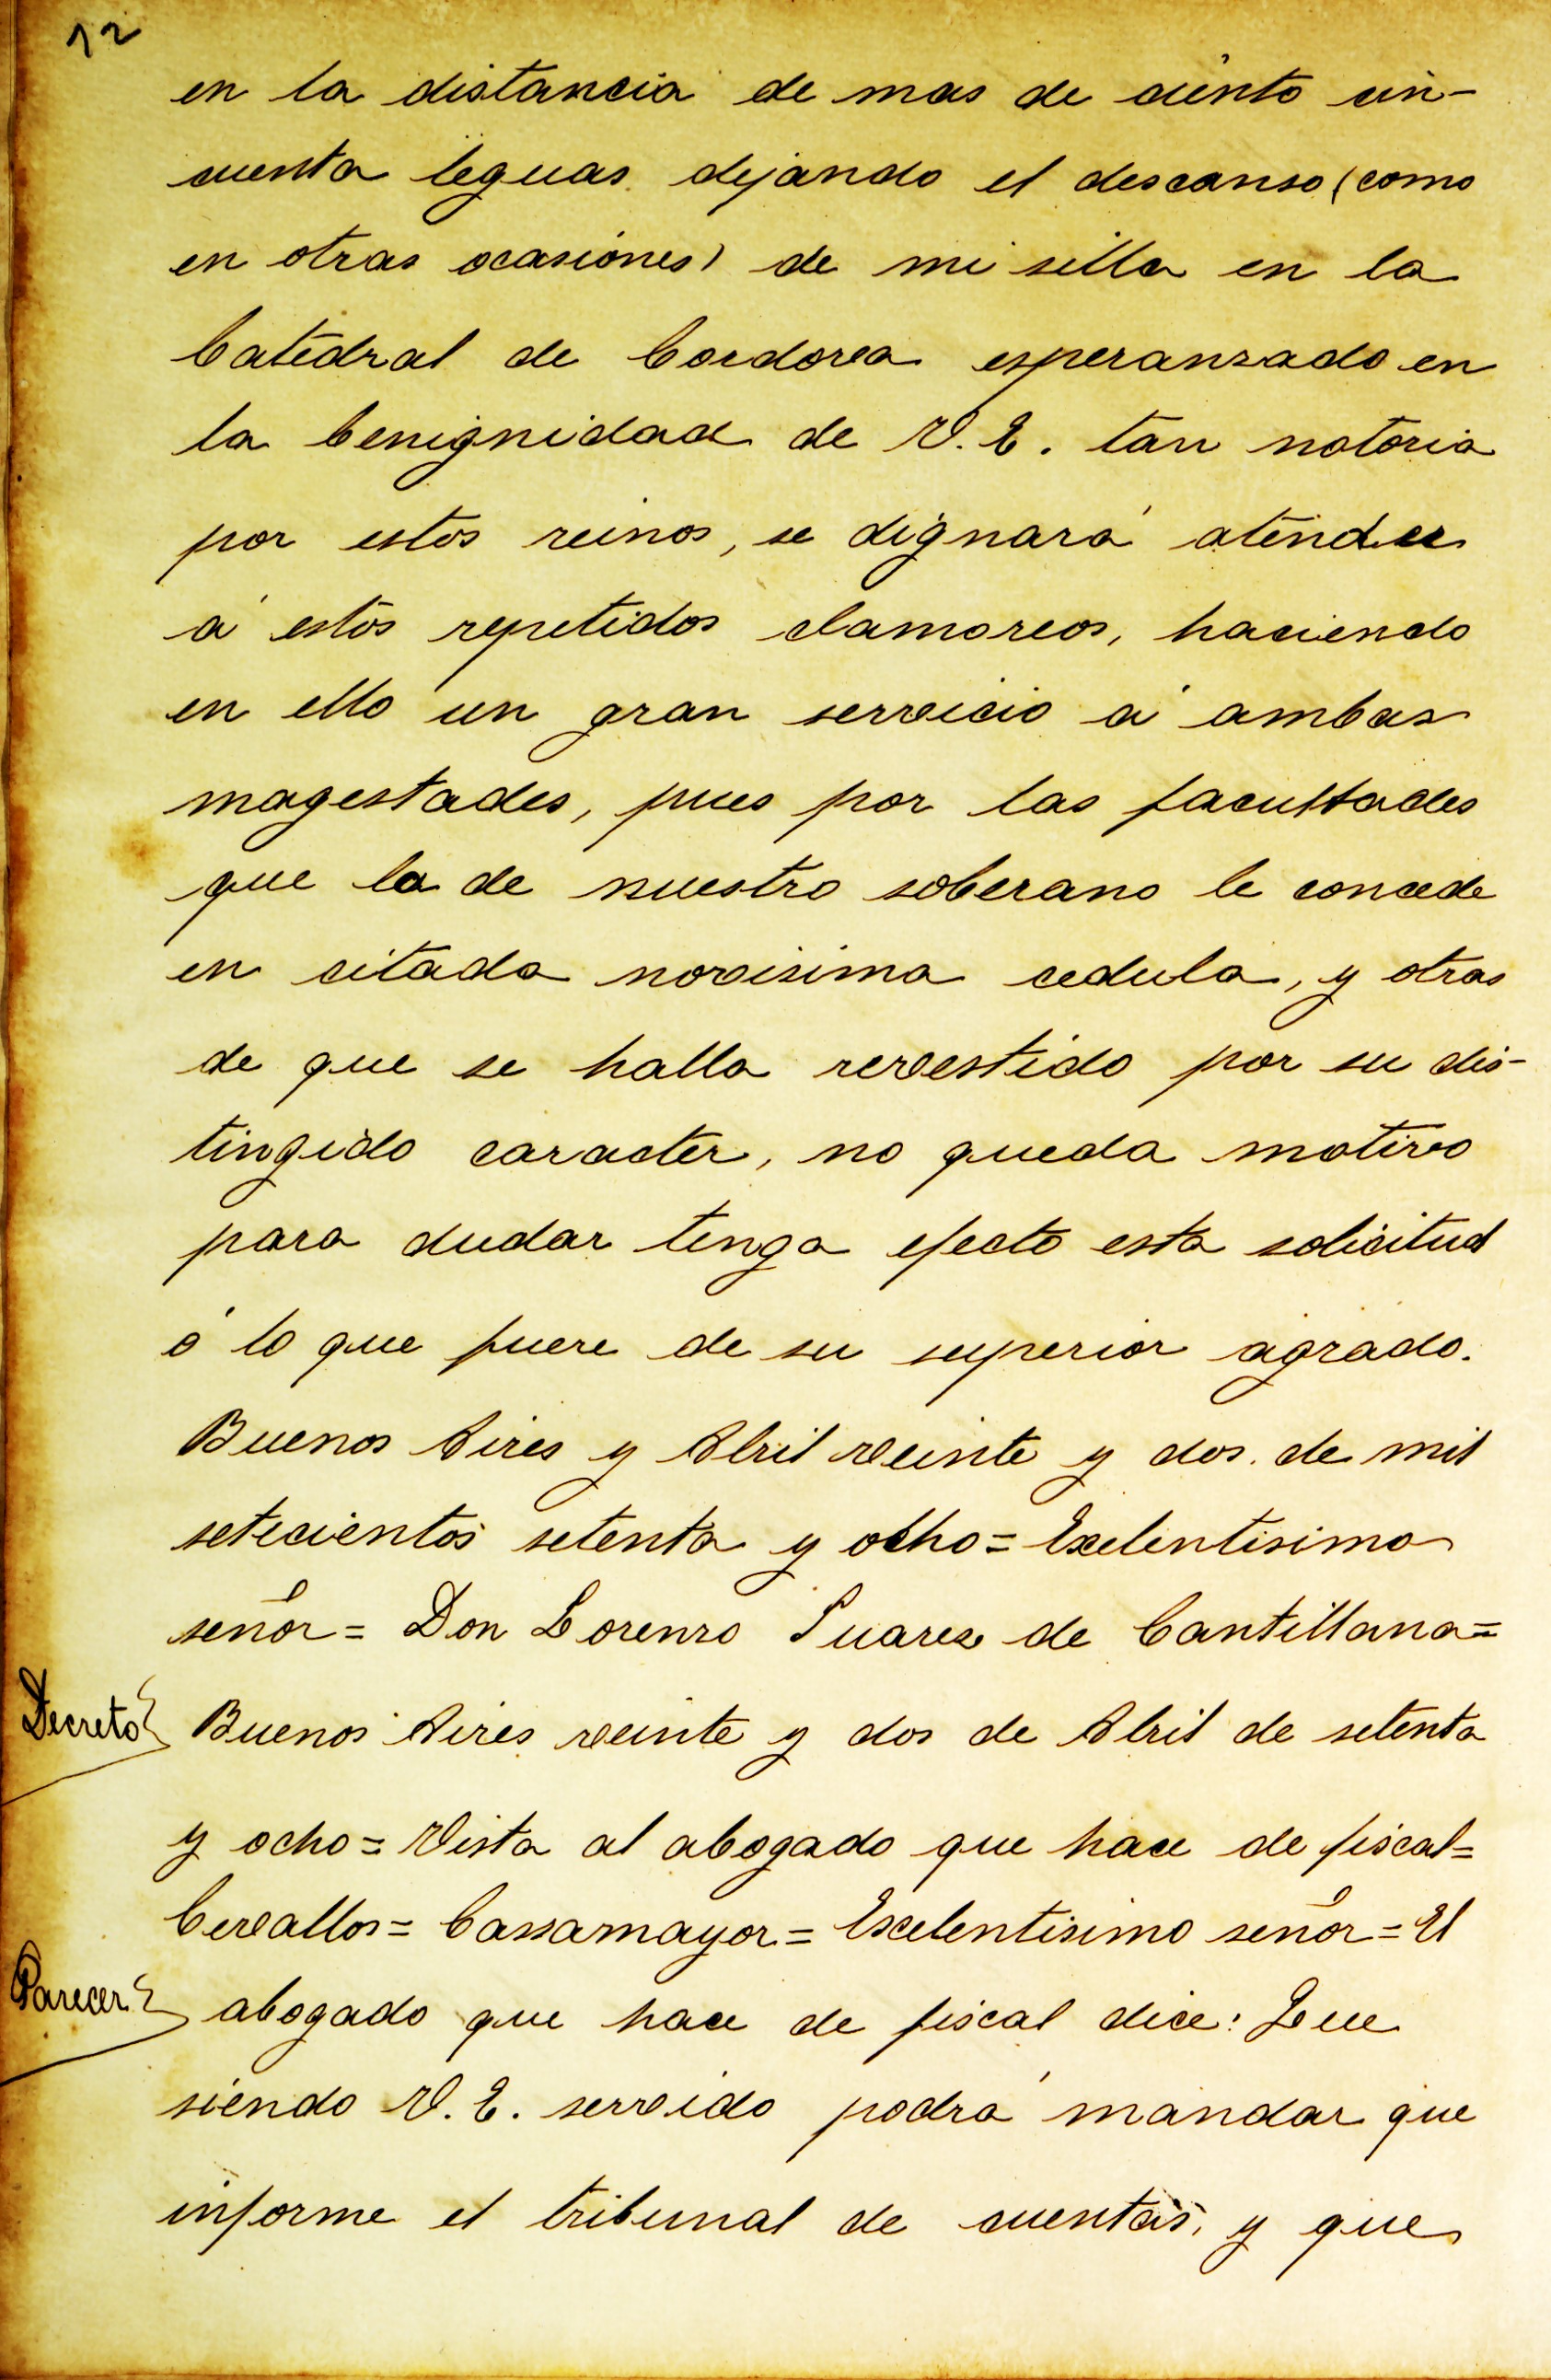 12
en la distancia de mas de ciento cin-
cuenta leguas dejando el descanso (como
en otras ocasiones) de mi silla en la
Catedral de Cordova esperanzado en
la benignidad de V. E. tan notoria
por estos reinos, se dignará atender
á estos repetidos clamoreos, haciendo
en ello un gran servicio á ambas
magestades, pues por las facultades
que la de nuestro soberano le concede
en citada novisima cedula, y otras
de que se halla revestido por su dis-
tingido caracter, no queda motivo
para dudar tenga efecto esta solicitud
ó lo que fuere de su superior agrado.
Buenos Aires y Abril veinte y dos de mil
setecientos setenta y ocho = Exelentisimo
señor = Don Lorenzo Suarez de Cantillana =
Decreto Buenos Aires veinte y dos de Abril de setenta
y ocho = Vista al abogado que hace de fiscal =
Cevallos = Cassamayor = Exelentisimo señor = El
Parecer abogado que hace de fiscal dice: Que
siendo V. E. servido podrá mandar que
informe el tribunal de cuentas, y que